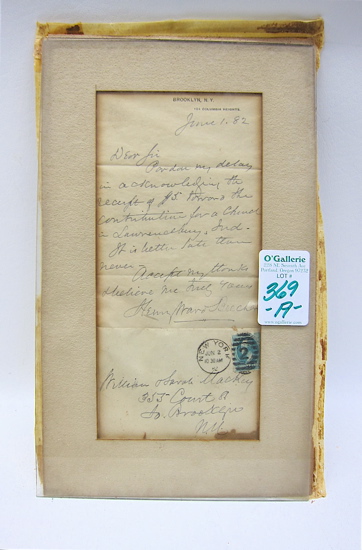 BROOKLYN, N.Y.
124 COLUMBIA HEIGHTS.
June 1. 82
Dear Sir
Pardon my delay
in acknowledging the
receipt of $5. toward the
contribution for a Church
in Lawrenceburg, Ind.
It is better late than
never.
Accept my thanks
& believe me truly yours
Henry Ward Beecher
NEW YORK
JUN 2
10 30 AM
82
2
William & Sarah Mackey
355 Court St
So. Brooklyn
O'Gallerie
228 NE Seventh Ave
Portland, Oregon 97232
LOT #
369
-A-
www.ogallerie.com